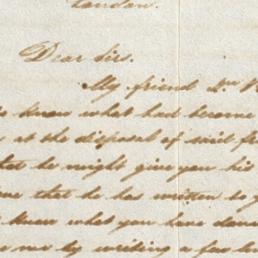 London.
Dear Sirs.
My friend Mr
know what had become
at the disposal of said
that he might give you his
me that he has written to
know what you have done
me by writing a few